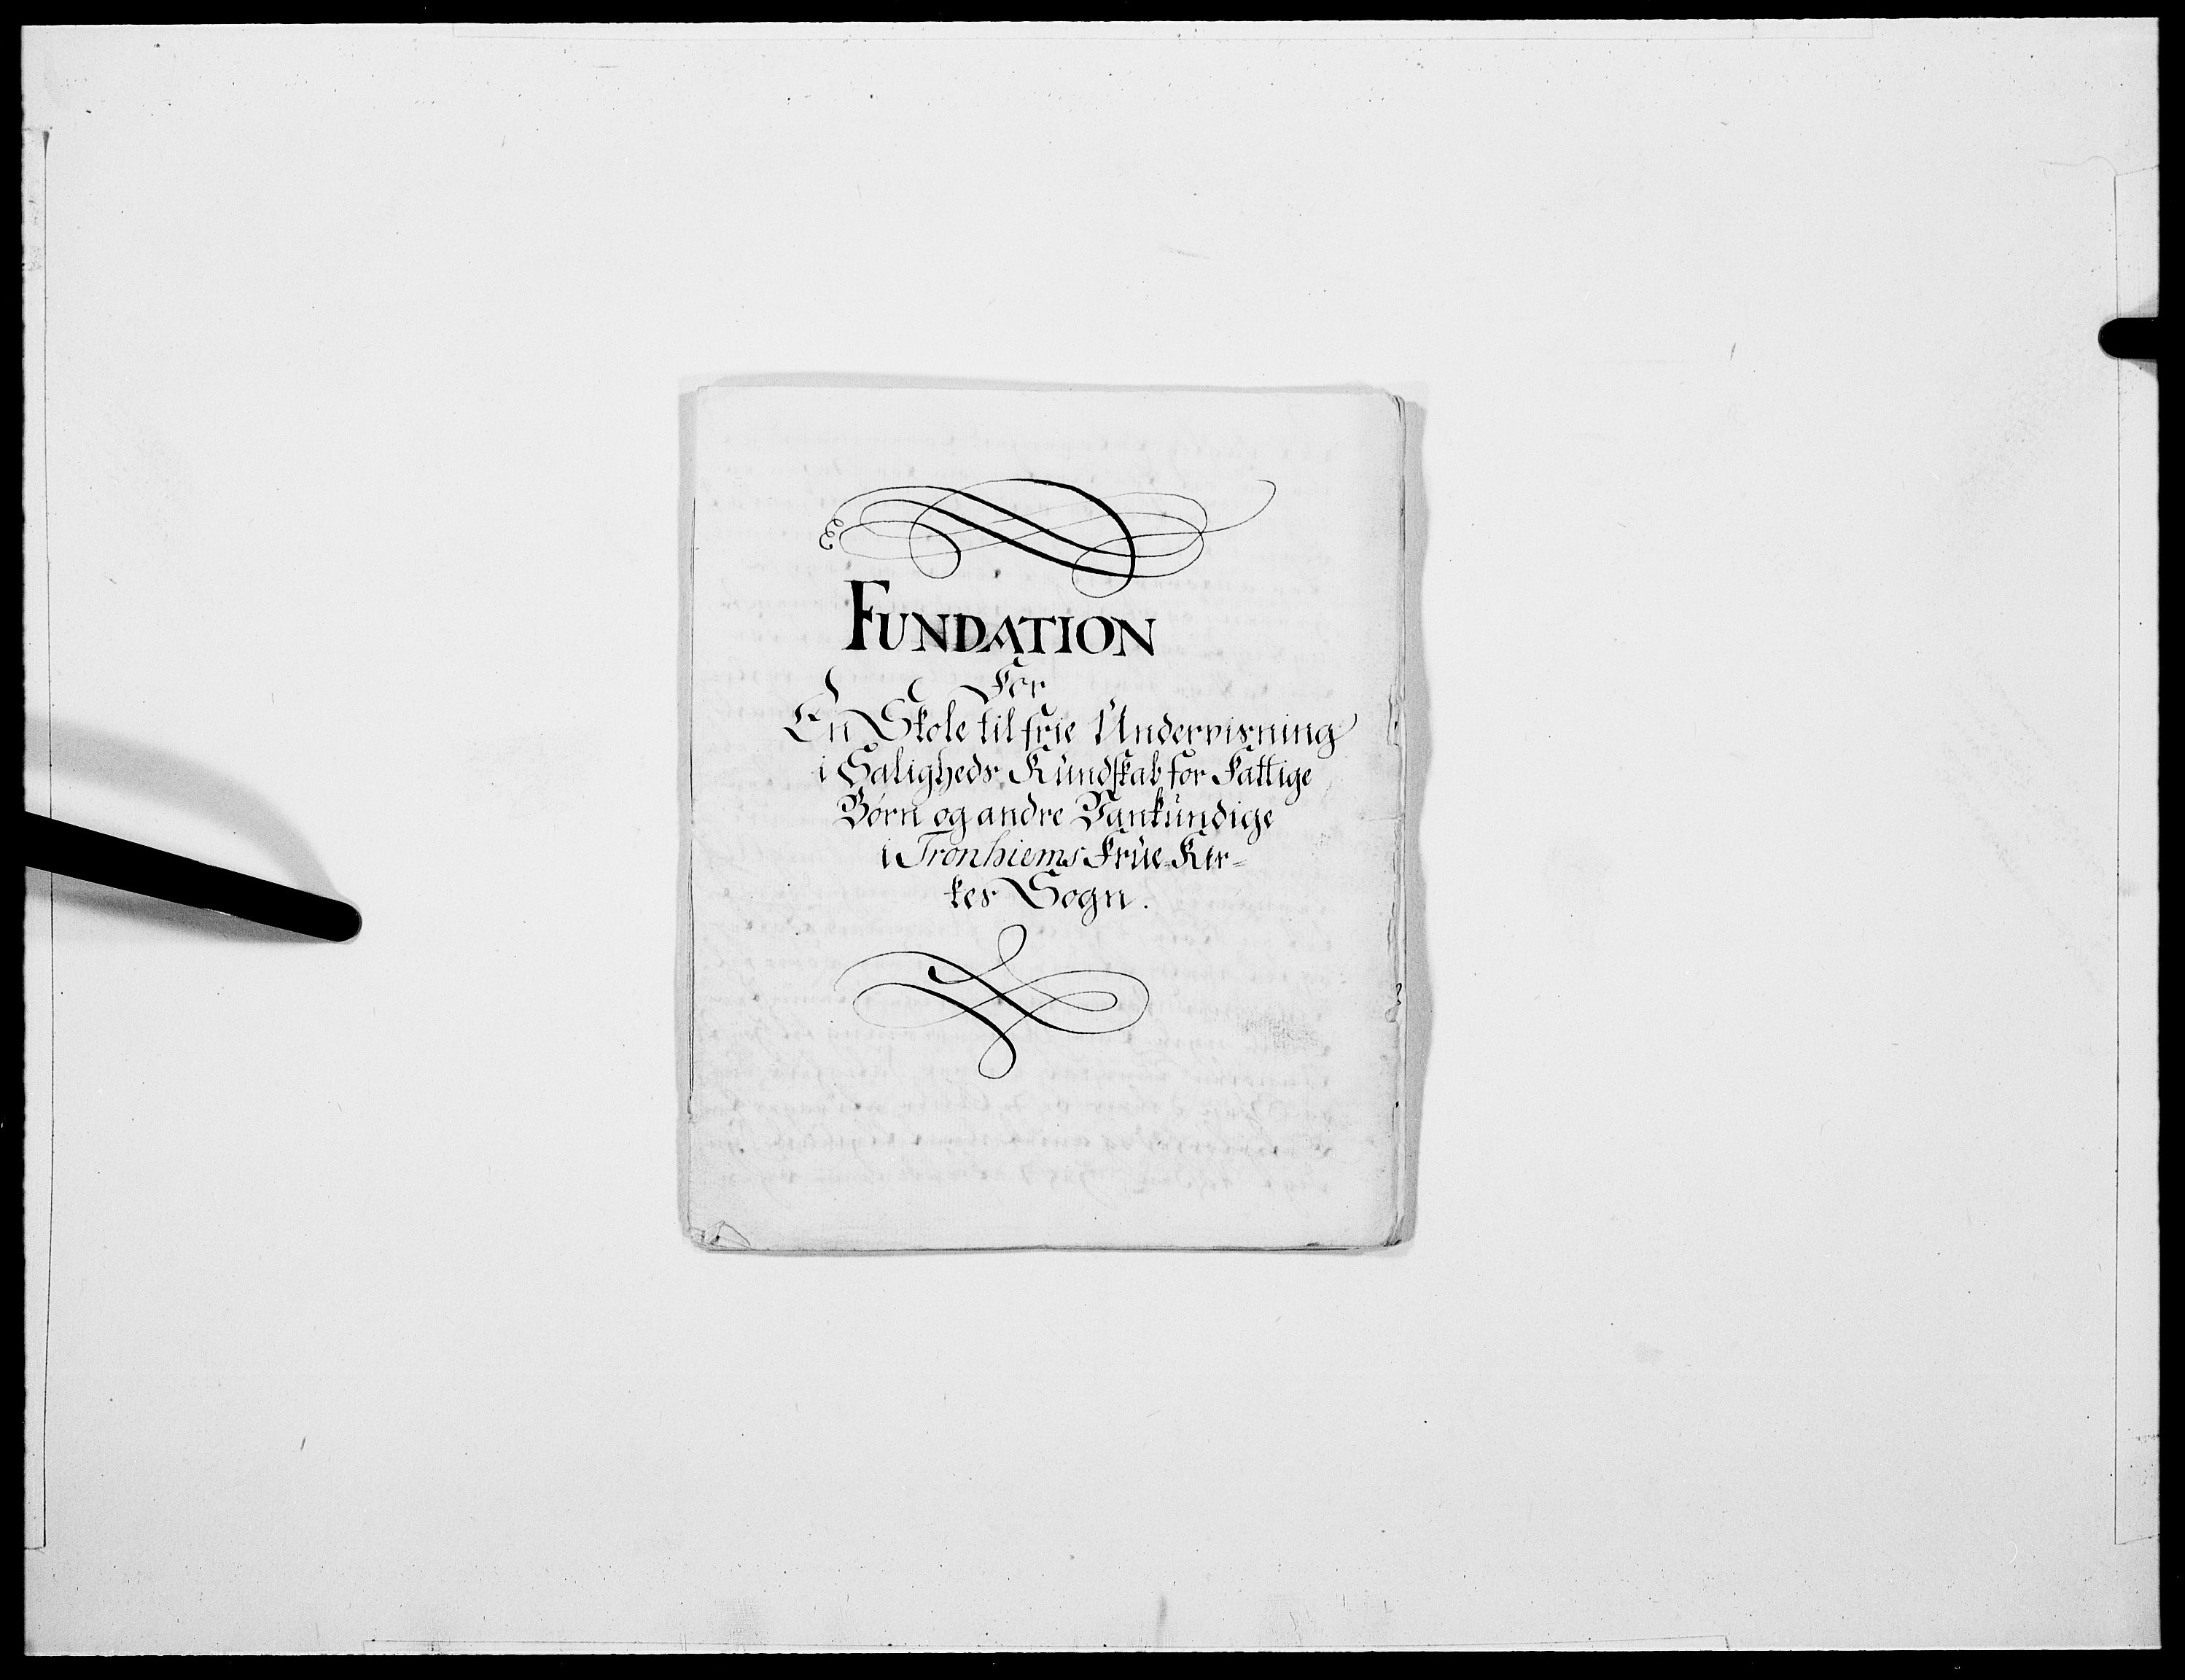 FUNDATION
For
En Skole til frie Undervisning
i Saligheds Kundskab for Fattige
Børn og andre Vankundige
i Tronhiems Frue-Kir-
kes Sogn.